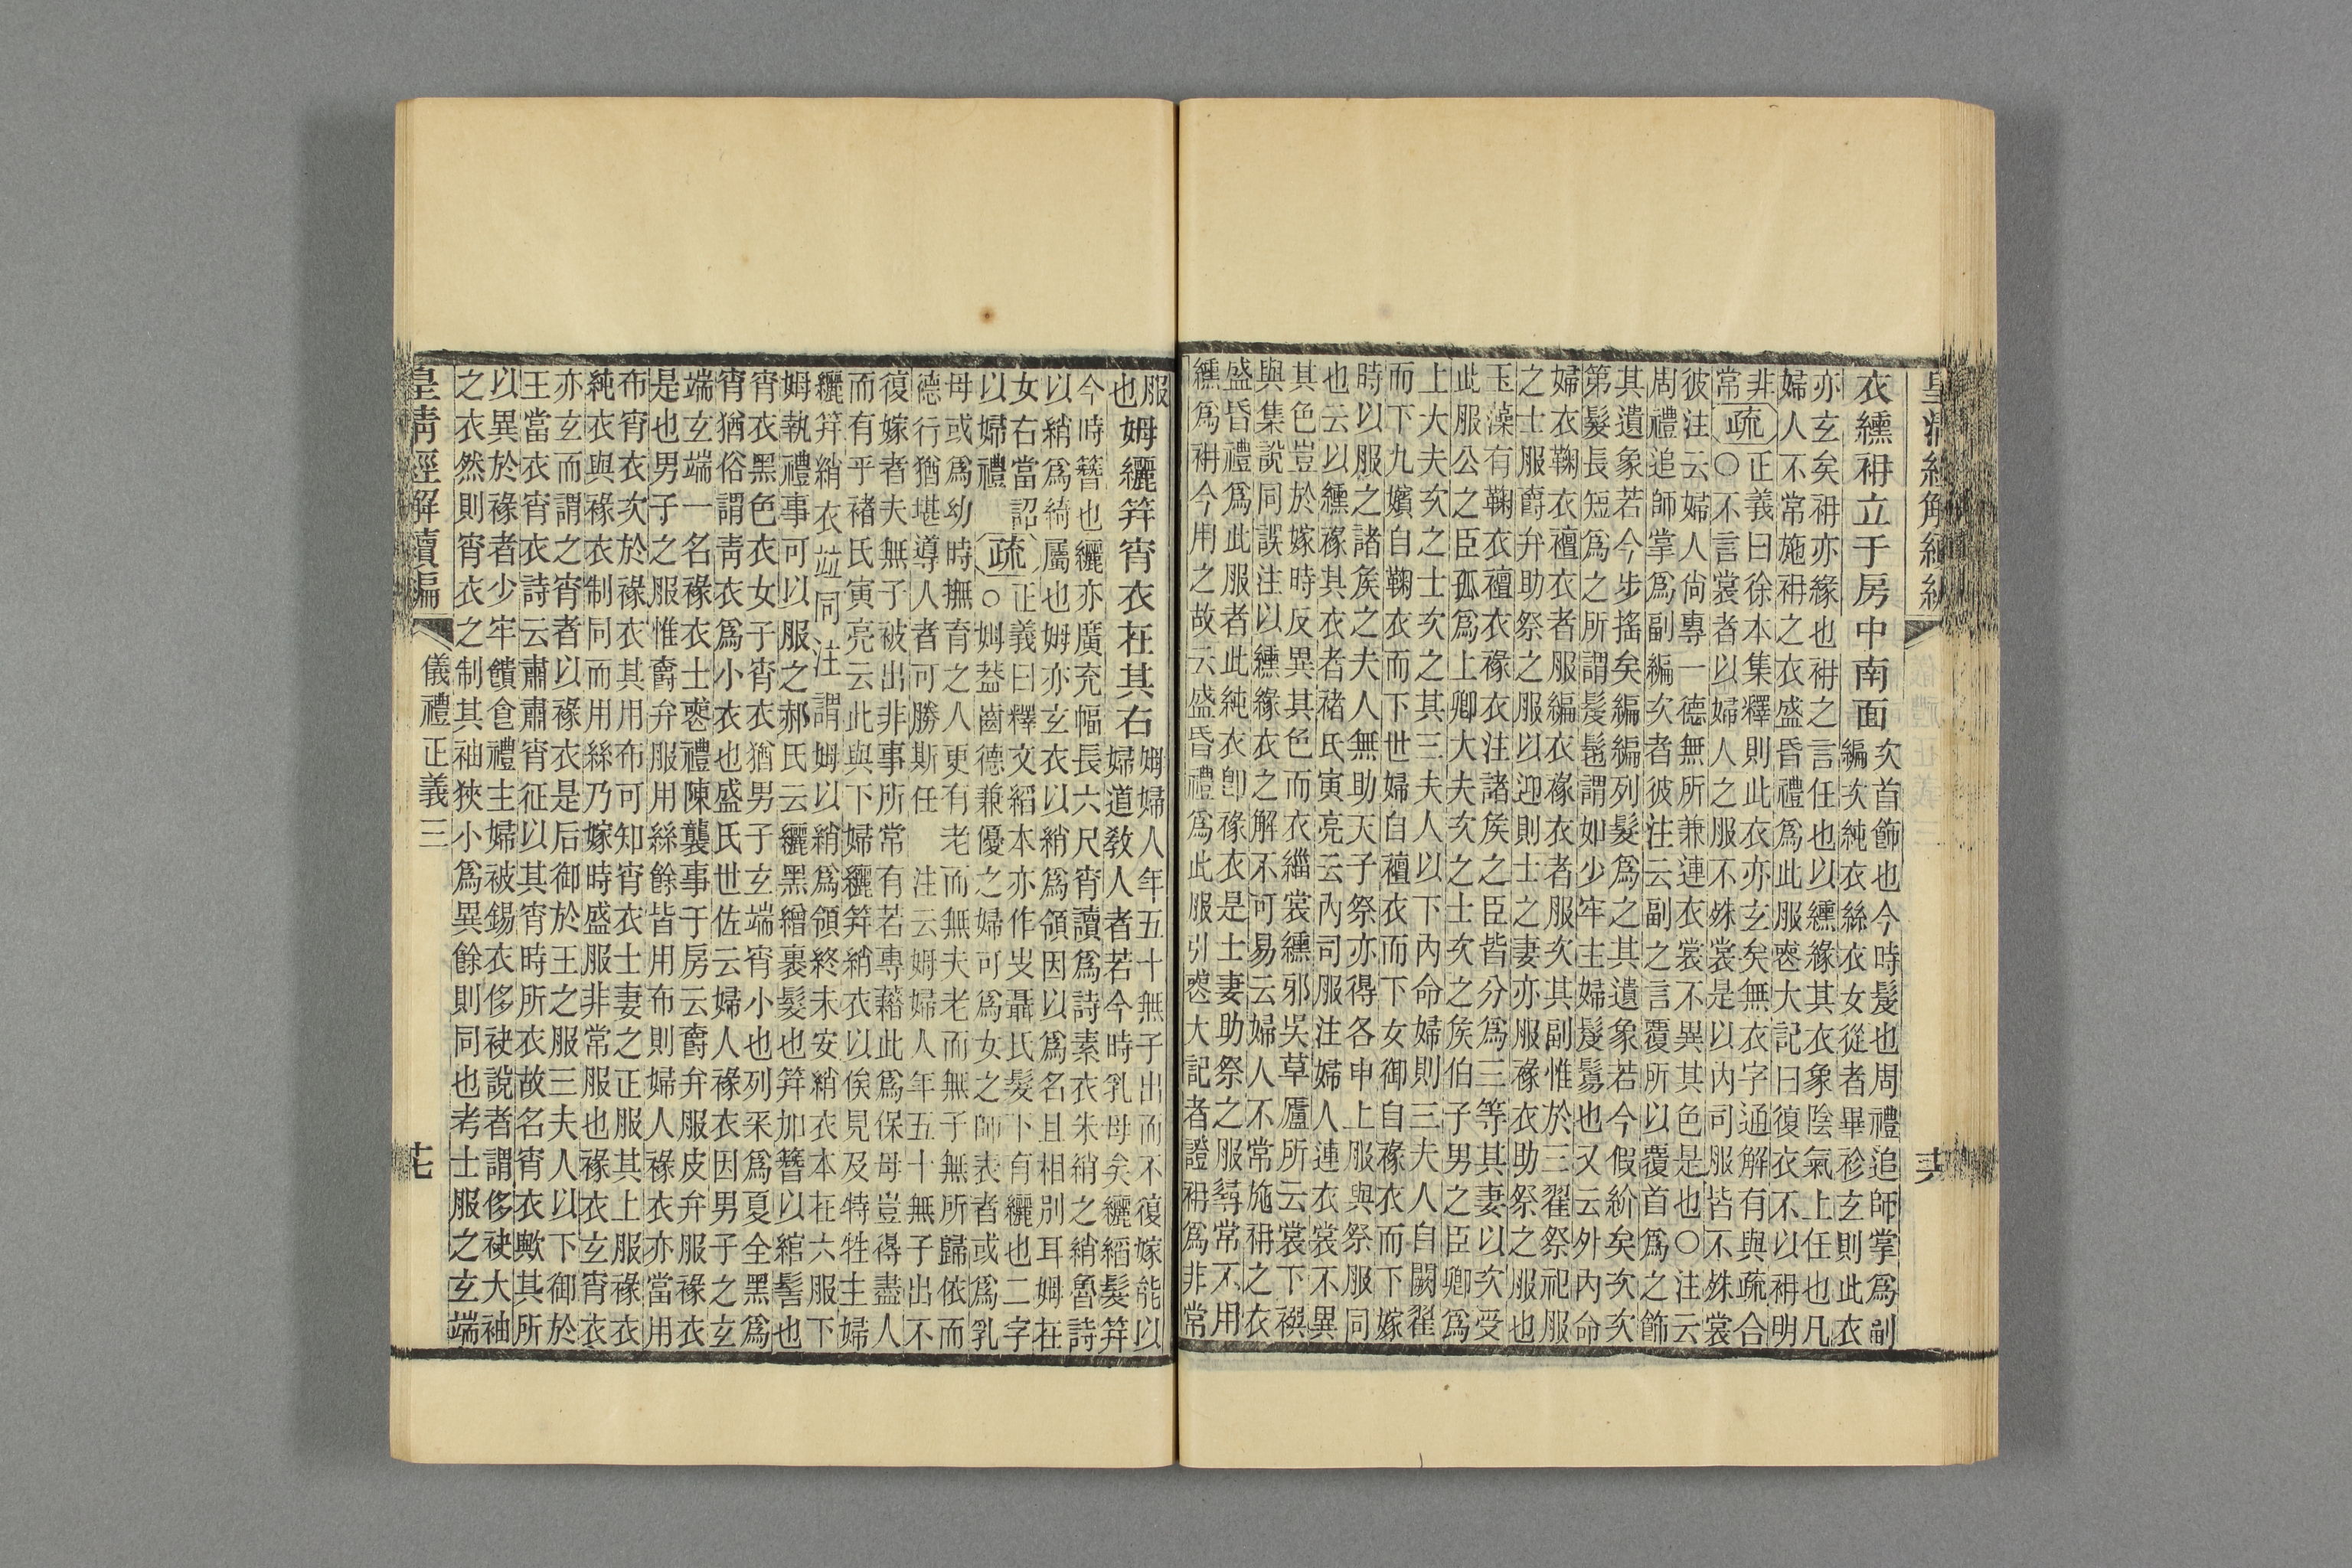 衣纁袡立于房中南面
次首飾也今時髲也周禮追師掌為副
編次純衣絲衣女從者畢袗玄則此衣
亦玄矣袡亦緣也袡之言任也以纁緣其衣象陰氣上任也凡
婦人不常施袡之衣盛昏禮為此服喪大記曰復衣不以袡明
非
常
疏
正義曰徐本集釋則此衣亦玄矣無衣字通解有與疏合
○不言裳者以婦人之服不殊裳是以內司服皆不殊裳
彼注云婦人尙專一德無所兼連衣裳不異其色是也○注云
周禮追師掌爲副編次者彼注云副之言覆所以覆首爲之飾
其遺象若今步搖矣編編列髮爲之其遺象若今假紒矣次次
第髮長短爲之所謂髲髢謂如少牢主婦髲鬄也又云外內命
婦衣鞠衣襢衣者服編衣褖衣者服次其副惟於三翟祭祀服
之士服爵弁助祭之服以迎則士之妻亦服褖衣助祭之服也
玉藻有鞠衣襢衣褖衣注諸矦之臣皆分爲三等其妻以次受
此服公之臣孤爲上卿大夫次之士次之矦伯子男之臣卿爲
上大夫次之士次之其三夫人以下內命婦則三夫人自闕翟
而下九嬪自鞠衣而下世婦自襢衣而下女御自褖衣而下嫁
時以服之諸矦之夫人無助天子祭亦得各申上服與祭服同
也云以纁褖其衣者褚氏寅亮云內司服注婦人連衣裳不異
其色豈於嫁時反異其色而衣緇裳纁邪吳草廬所云裳下襈
與集說同誤注以纁緣衣之解不可易云婦人不常施袡之衣
盛昏禮爲此服者此純衣卽褖衣是士妻助祭之服尋常不用
纁爲袡今用之故云盛昏禮爲此服引喪大記者證袡爲非常
服
也
姆纚笄宵衣在其右
姆婦人年五十無子出而不復嫁能以
婦道敎人者若今時乳母矣纚縚髮笄
今時簪也纚亦廣充幅長六尺宵讀爲詩素衣朱綃之綃魯詩
以綃爲綺屬也姆亦玄衣以綃爲領因以爲名且相別耳姆在
女右當詔
以婦禮
疏
正義曰釋文縚本亦作㞢聶氏髮下有纚也二字
○姆葢齒德兼優之婦可爲女之師表者或爲乳
母或爲幼時撫育之人更有老而無夫老而無子無所歸依而
德行猶堪導人者可勝斯任 注云姆婦人年五十無子出不
復嫁者夫無子被出非事所常有若專藉此爲保母豈得盡人
而有乎褚氏寅亮云此與下婦纚笄綃衣以俟見及特牲主婦
纚笄綃衣竝同注謂姆以綃爲領終未安綃衣本在六服下
姆執禮事可以服之郝氏云纚黑繒裹髮也笄加簪以綰髻也
宵衣黑色衣女子宵衣猶男子玄端宵小也列采爲夏全黑爲
宵猶俗謂靑衣爲小衣也盛氏世佐云婦人褖衣因男子之玄
端玄端一名褖衣士喪禮陳襲事于房云爵弁服皮弁服褖衣
是也男子之服惟爵弁服用絲餘皆用布則婦人褖衣亦當用
布宵衣次於褖衣其用布可知宵衣士妻之正服其上服褖衣
純衣與褖衣制同而用絲乃嫁時盛服非常服也褖衣玄宵衣
亦玄而謂之宵者以褖衣是后御於王之服三夫人以下御於
王當衣宵衣詩云肅肅宵征以其宵時所衣故名宵衣歟其所
以異於褖者少牢饋食禮主婦被錫衣侈袂說者謂侈袂大袖
之衣然則宵衣之制其袖狹小爲異餘則同也考士服之玄端
皇淸經解續編
儀禮正義三